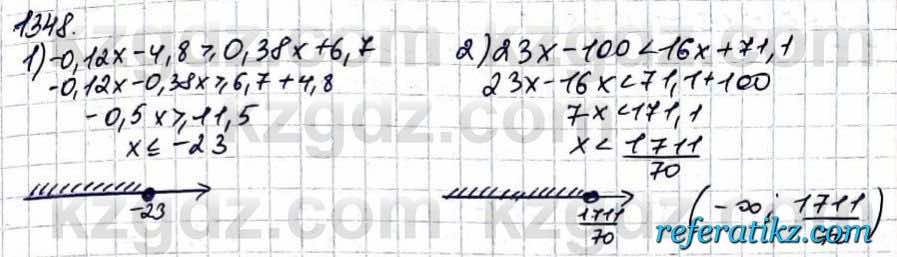 1348.
1) -0,12x-4,8⩾0,38x+6,7
-0,12x-0,38x⩾6,7+4,8
-0,5x⩾11,5
x≤-23
-23
2) 23x-100<16x+71,1
23x-16x<71,1+100
7x<171,1
x< 1711/70
1711/70
(-∞; 1711/70)
kzgdz.com
referatikz.com